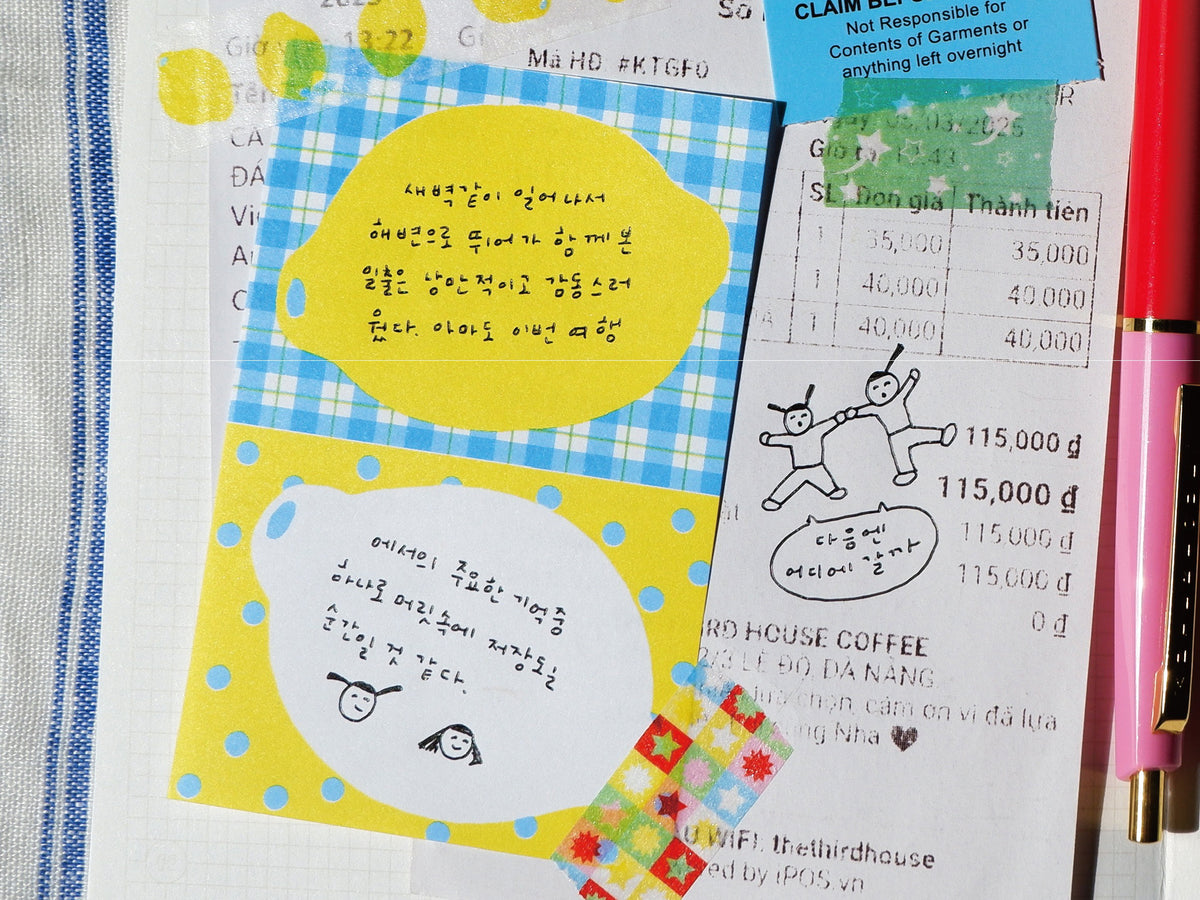 2025
Giờ vào: 13:22
Mã HĐ #KTGF0
CLAIM
Not Responsible for
Contents of Garments or
anything left overnight
새벽같이 일어나서
해변으로 뛰어가 함께 본
일출은 낭만적이고 감동스러
웠다. 아마도 이번 여행
에서의 주요한 기억중
하나로 머릿속에 저장될
순간일 것 같다.
SL Đơn giá Thành tiền
1 35,000 35,000
1 40,000 40,000
1 40,000 40,000
115,000 đ
115,000 đ
115,000 đ
115,000 đ
0 đ
다음엔
어디에 갈까
RD HOUSE COFFEE
LÊ ĐỘ, ĐÀ NẴNG
lựa chọn, cảm ơn vì đã lựa
Nha
WIFI: thethirdhouse
ed by iPOS.vn